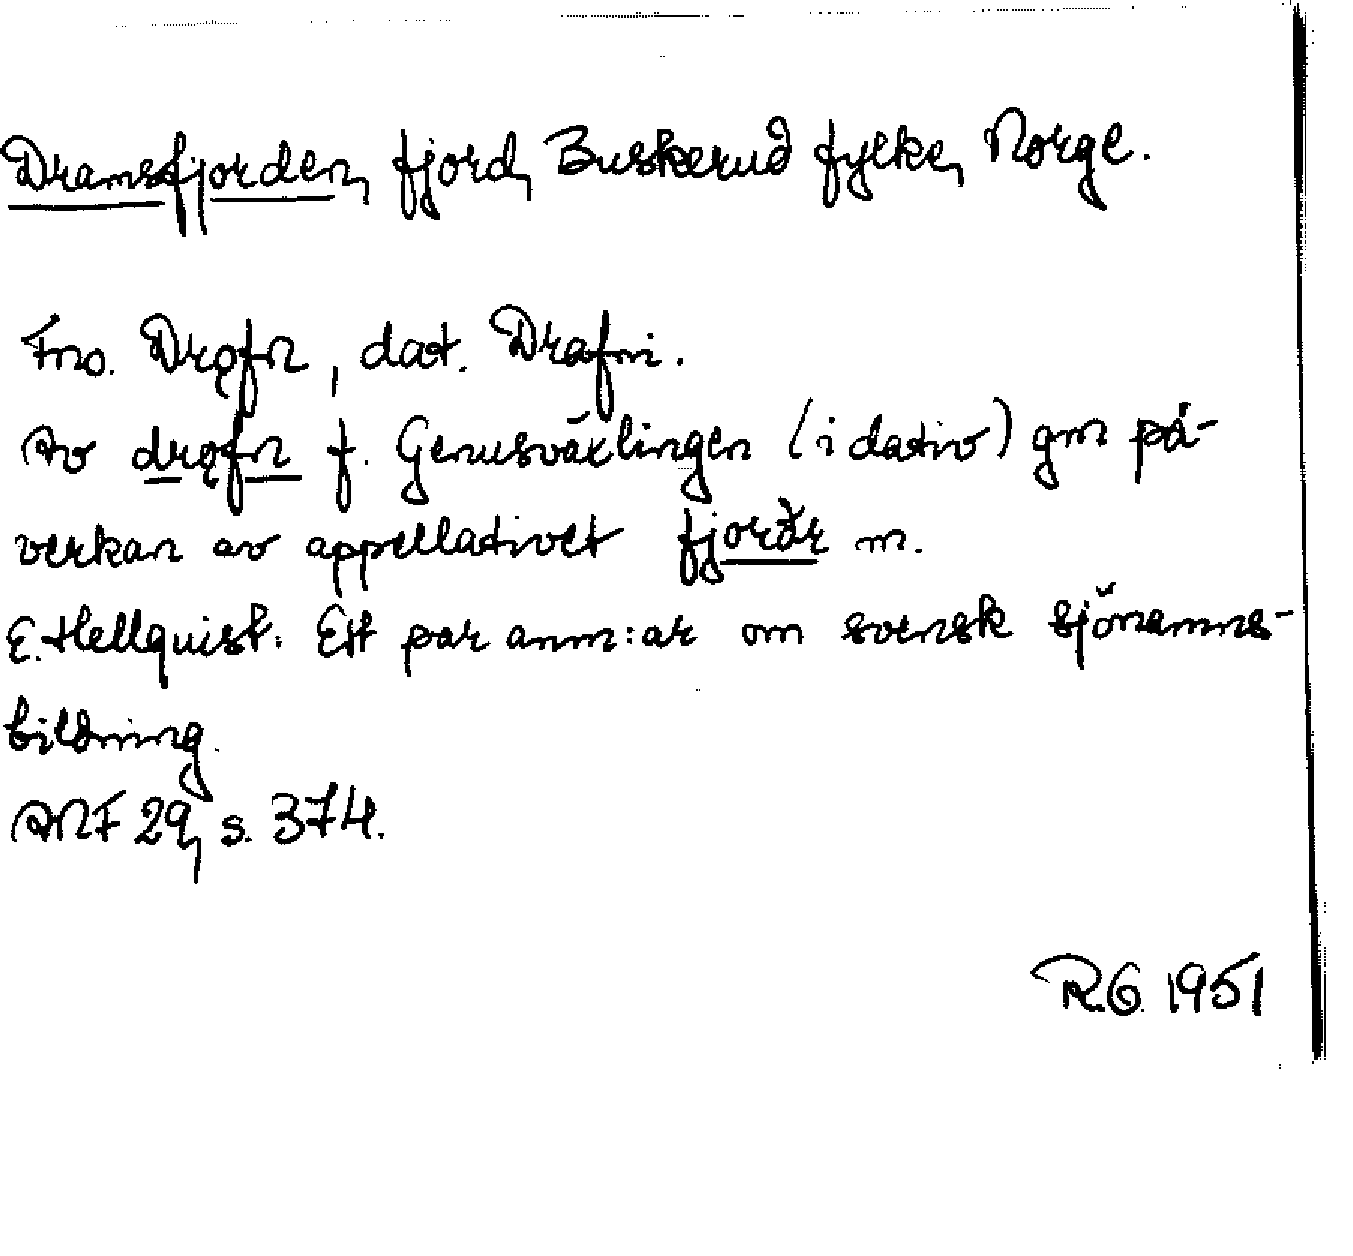 Dramsfjorden, fjord, Buskerud fylke, Norge.
Fno. Drǫfn, dat. Drafni.
Av drǫfn f. Genusväxlingen (i dativ) gm på-
verkan av appellativet fjorðr m.
E. Hellquist: Ett par anm:ar om svensk sjönamns-
bildning.
ANF 29, s. 374.
R.G. 1951